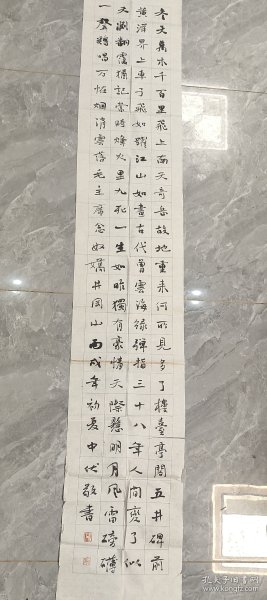 参天萬木千百里飛上南天奇岳故地重来何所見多了樓臺亭閣五井碑前
黄洋界上車子飛如躍江山如畫古代曾雲海綠彈指三十八年人間變了似
天淵翻覆猶記當時烽火里九死一生如昨獨有豪情天際懸明月風雷磅礴
一聲鷄唱万怪烟消雲落毛主席念奴嬌井岡山丙戌年初夏中代敬書
孔夫子旧书网